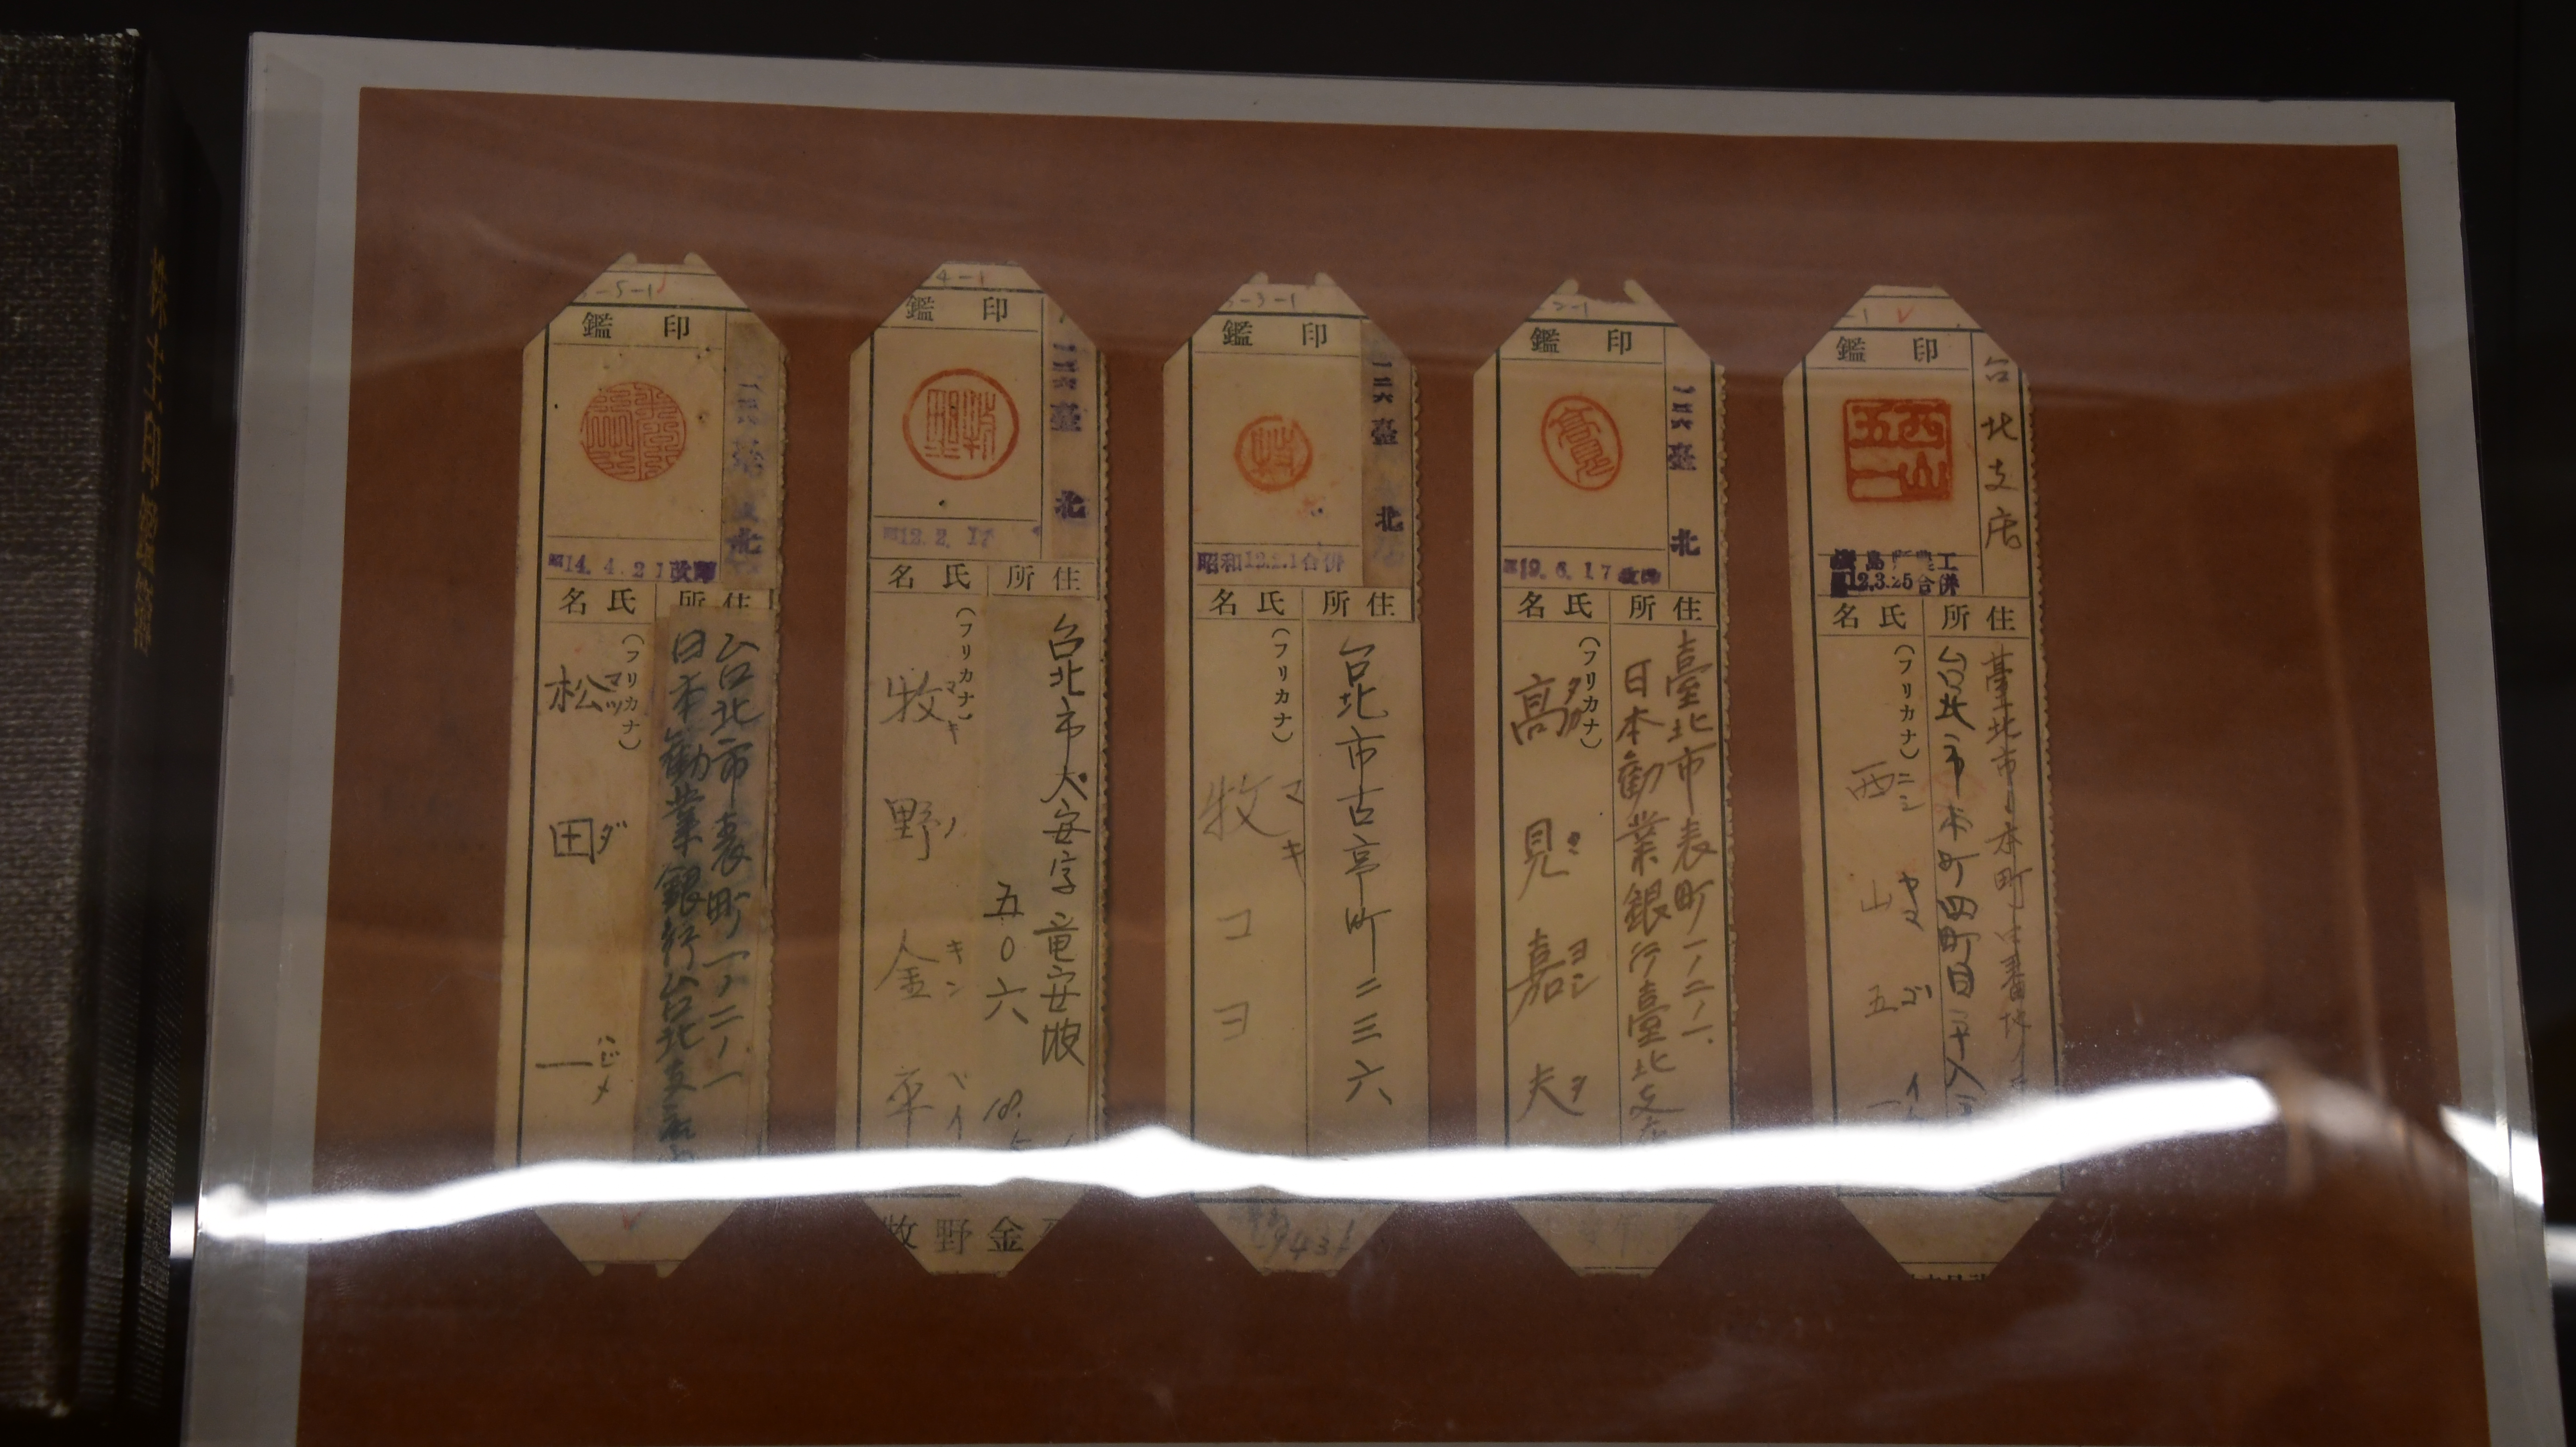 鑑印
昭14.4.21改印
名氏
所住
(フリカナ)
台北市表町一ノ二ノ一
日本勧業銀行台北支店内
松田一
マツダ
ハジメ
4-1
鑑印
一二六臺北
昭12.2.17
名氏
所住
(フリカナ)
台北市大安字竜安坡
五〇六
牧野金平
マキノ
キンペイ
牧野金
3-1
鑑印
一二六臺北
昭和12.2.1合併
名氏
所住
(フリカナ)
台北市古亭町二三六
牧コヨ
マキ
2-1
鑑印
一二六臺北
昭19.6.17改印
名氏
所住
(フリカナ)
臺北市表町一ノ二ノ一
日本勧業銀行臺北支店
高見嘉夫
タカミ
ヨシヲ
鑑印
西山五一
台北支店
12.3.25合併
名氏
所住
(フリカナ)
臺北市本町
台北市本町四町目
西山五一
ニシヤマ
ゴイチ